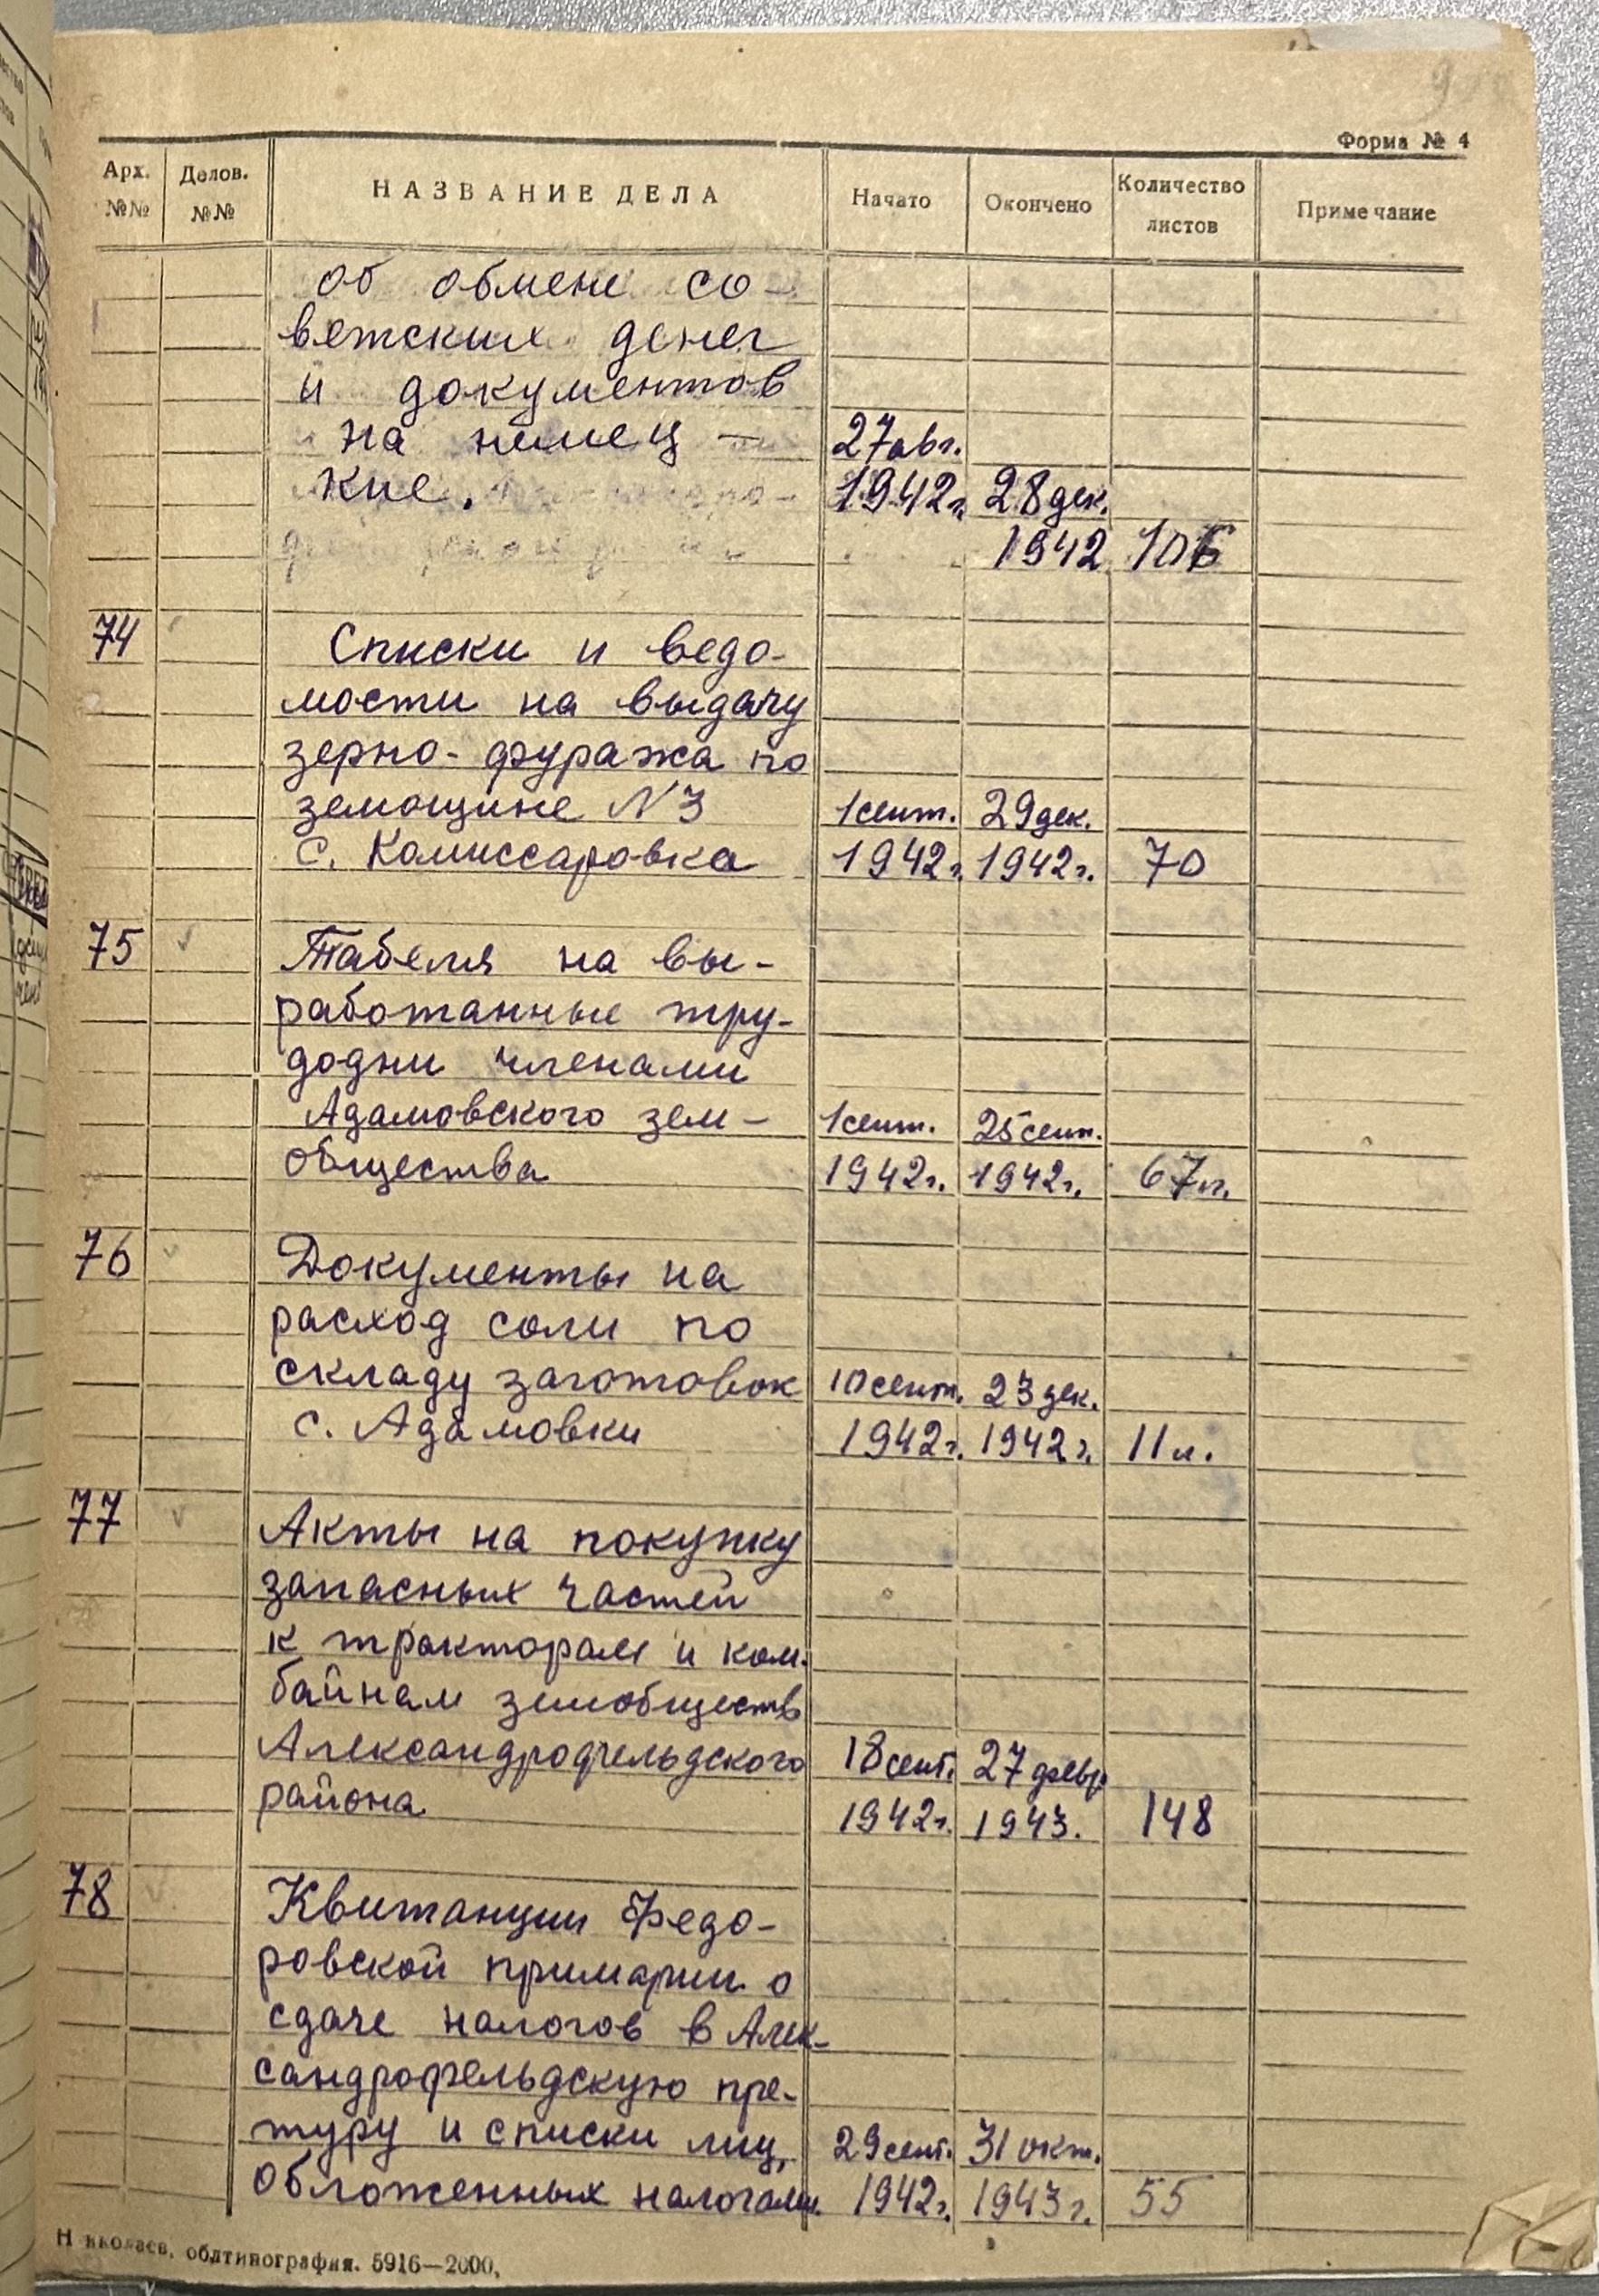 Форма № 4
Арх. №№ Делов. №№ НАЗВАНИЕ ДЕЛА Начато Окончено Количество листов Примечание
об обмене со-
ветских денег
и документов
на немец- 27 авг.
кие. 1942г. 28 дек.
1942 106
74 Списки и ведо-
мости на выдачу
зерно-фуража по
земощине N 3 1 сент. 29 дек.
с. Комиссаровка 1942г. 1942г. 70
75 Табеля на вы-
работанные тру-
додни членами
Адамовского зем- 1 сент. 25 сент.
общества 1942г. 1942г. 67л.
76 Документы на
расход соли по
складу заготовок 10 сент. 23 дек.
с. Адамовки 1942г. 1942г. 11л.
77 Акты на покупку
запасных частей
к тракторам и ком-
байнам земобществ
Александрофельдского 18 сент. 27 февр
района 1942г. 1943. 148
78 Квитанции Федо-
ровской примарии о
сдаче налогов в Алек-
сандрофельдскую пре-
туру и списки лиц, 29 сент. 31 окт.
обложенных налогами. 1942г. 1943г. 55
Николаев, облтипография. 5916—2000.